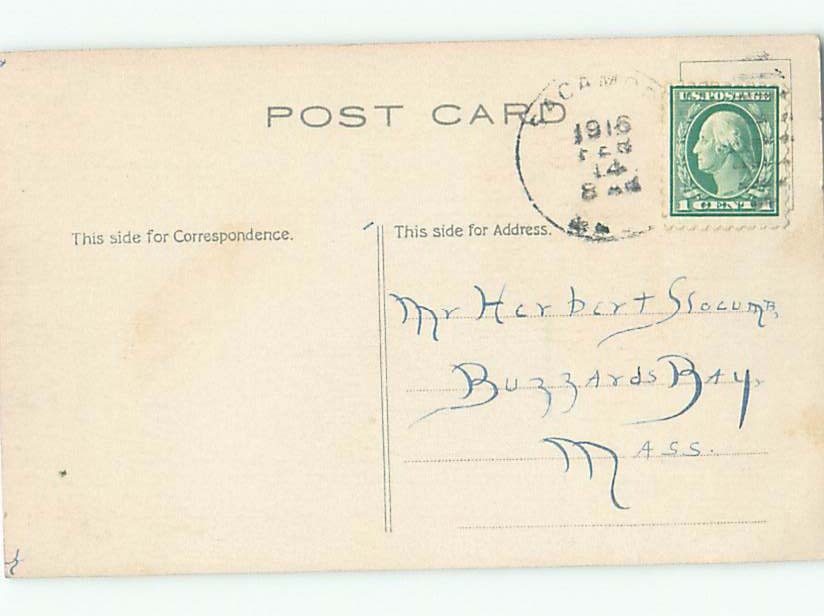 POST CARD
1916
FEB
14
8 AM
U.S. POSTAGE
1 CENT 1
This side for Correspondence.
This side for Address.
Mr Herbert Slocumb,
Buzzards Bay,
Mass.